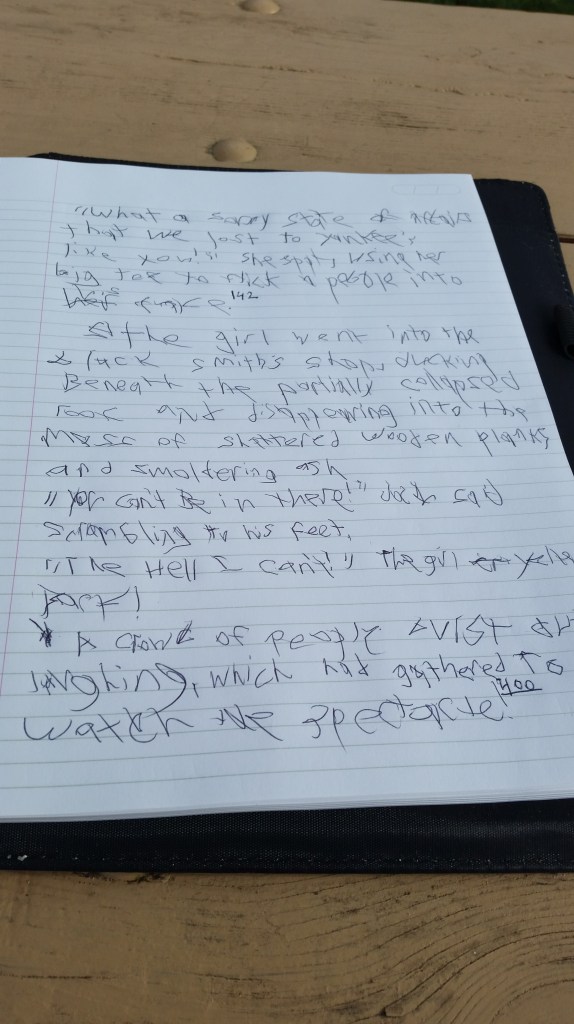 "What a sorry state of affairs
that we lost to Yankee's
like you!" she spit, using her
big toe to flick a people into
his face. 142
The girl went into the
black smith's shop, ducking
Beneath the partially collapsed
roof and disappearing into the
mess of shattered wooden planks
and smoltering ash
"You can't be in there!" said
scrambling to his feet.
"The Hell I can't!" The girl
back!
A crowd of people out
laughing, which had gathered to
watch the spectacle! 400